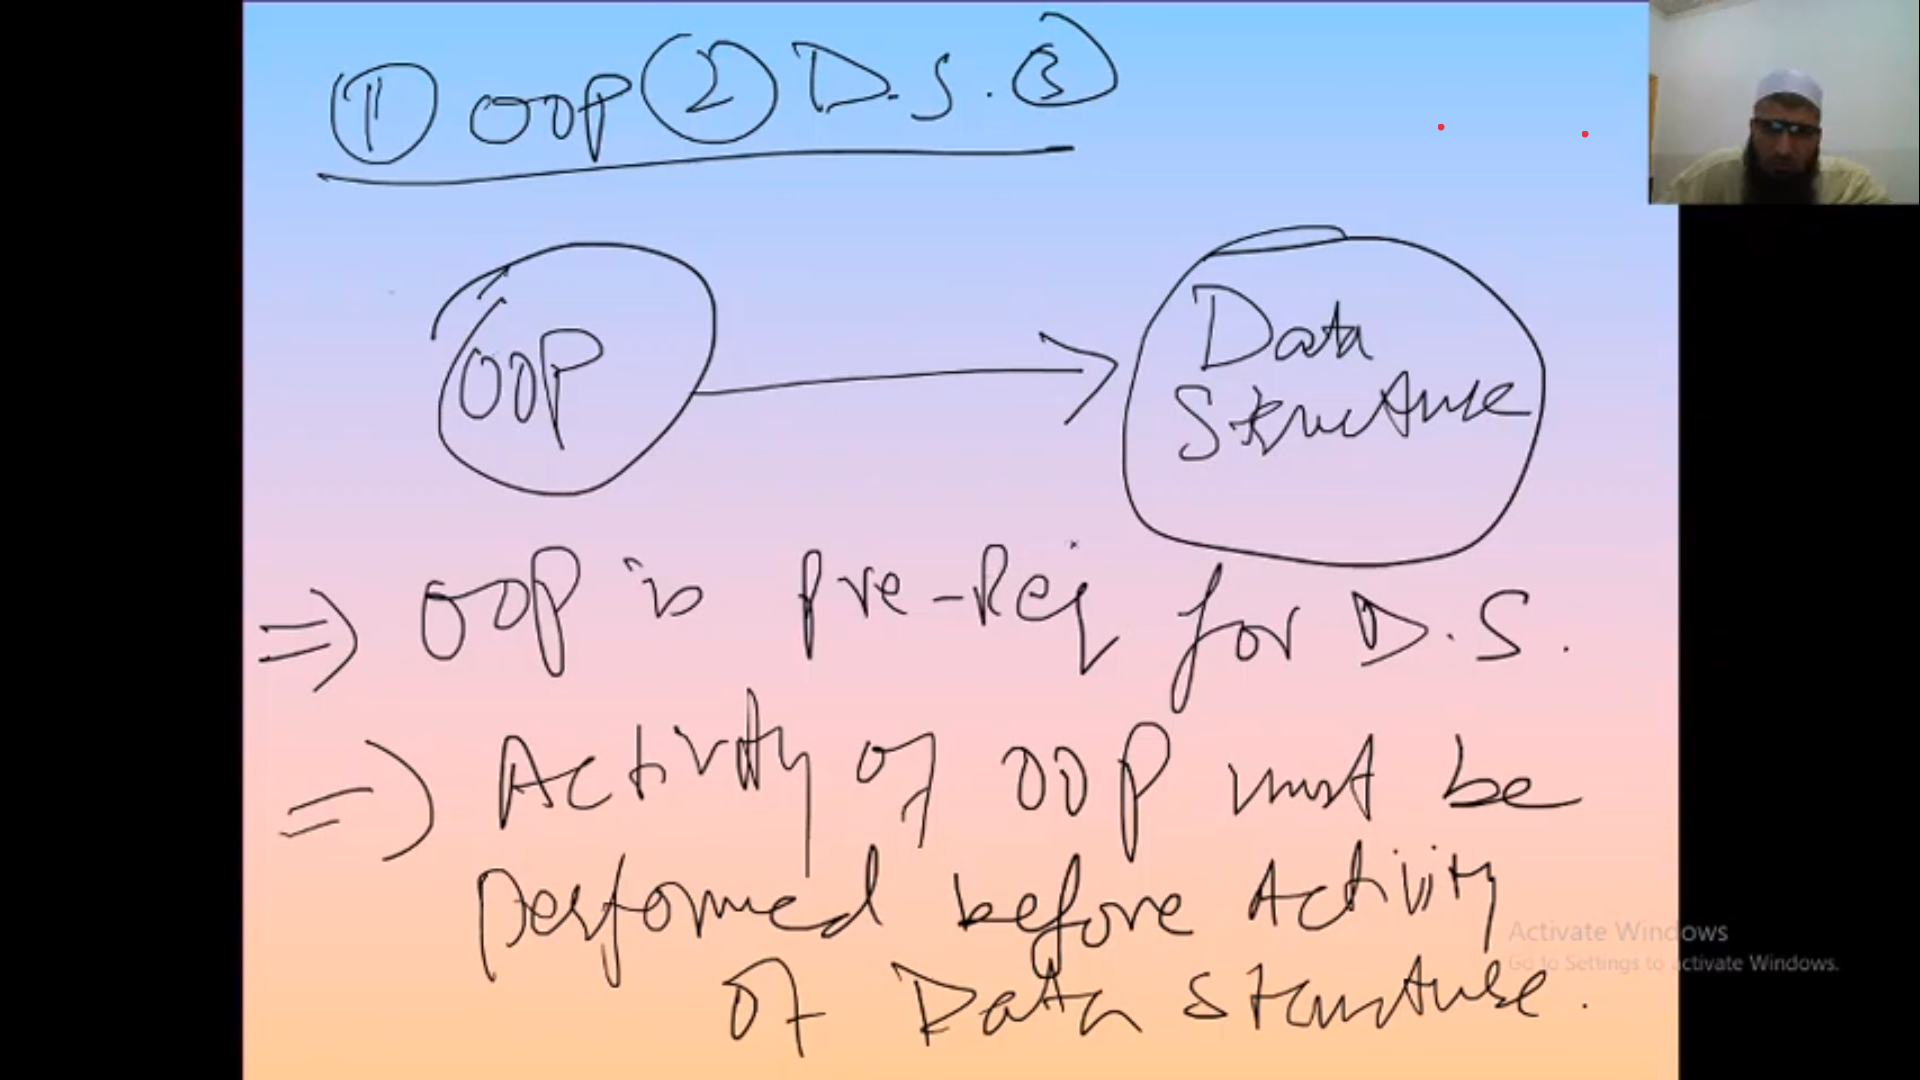 ① OOP ② D.S. ③
OOP
Data
Structure
⇒ OOP is Pre-Req for D.S.
⇒ Activity of OOP must be
performed before Activity
of Data Structure.
Activate Windows
Go to Settings to activate Windows.